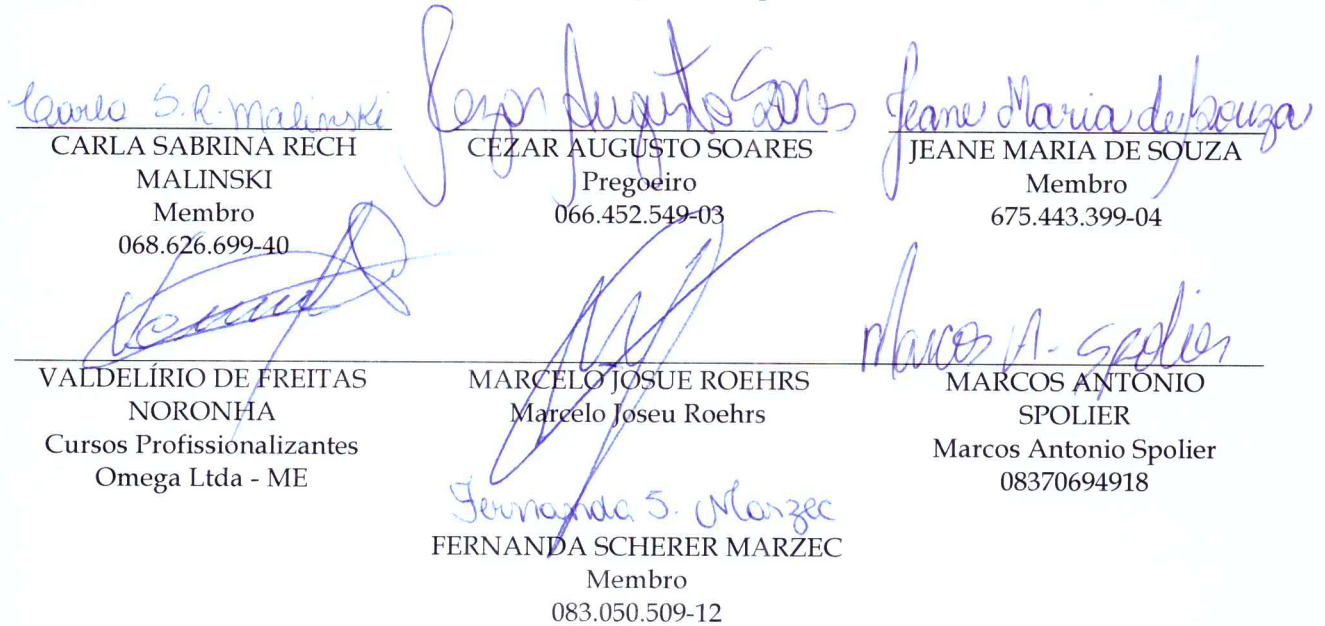 Carla S.R. Malinski
CARLA SABRINA RECH
MALINSKI
Membro
068.626.699-40
Cezar Augusto Soares
CEZAR AUGUSTO SOARES
Pregoeiro
066.452.549-03
Jeane Maria de Souza
JEANE MARIA DE SOUZA
Membro
675.443.399-04
VALDELÍRIO DE FREITAS
NORONHA
Cursos Profissionalizantes
Omega Ltda - ME
MARCELO JOSUE ROEHRS
Marcelo Joseu Roehrs
Marcos A. Spolier
MARCOS ANTONIO
SPOLIER
Marcos Antonio Spolier
08370694918
Fernanda S. Marzec
FERNANDA SCHERER MARZEC
Membro
083.050.509-12